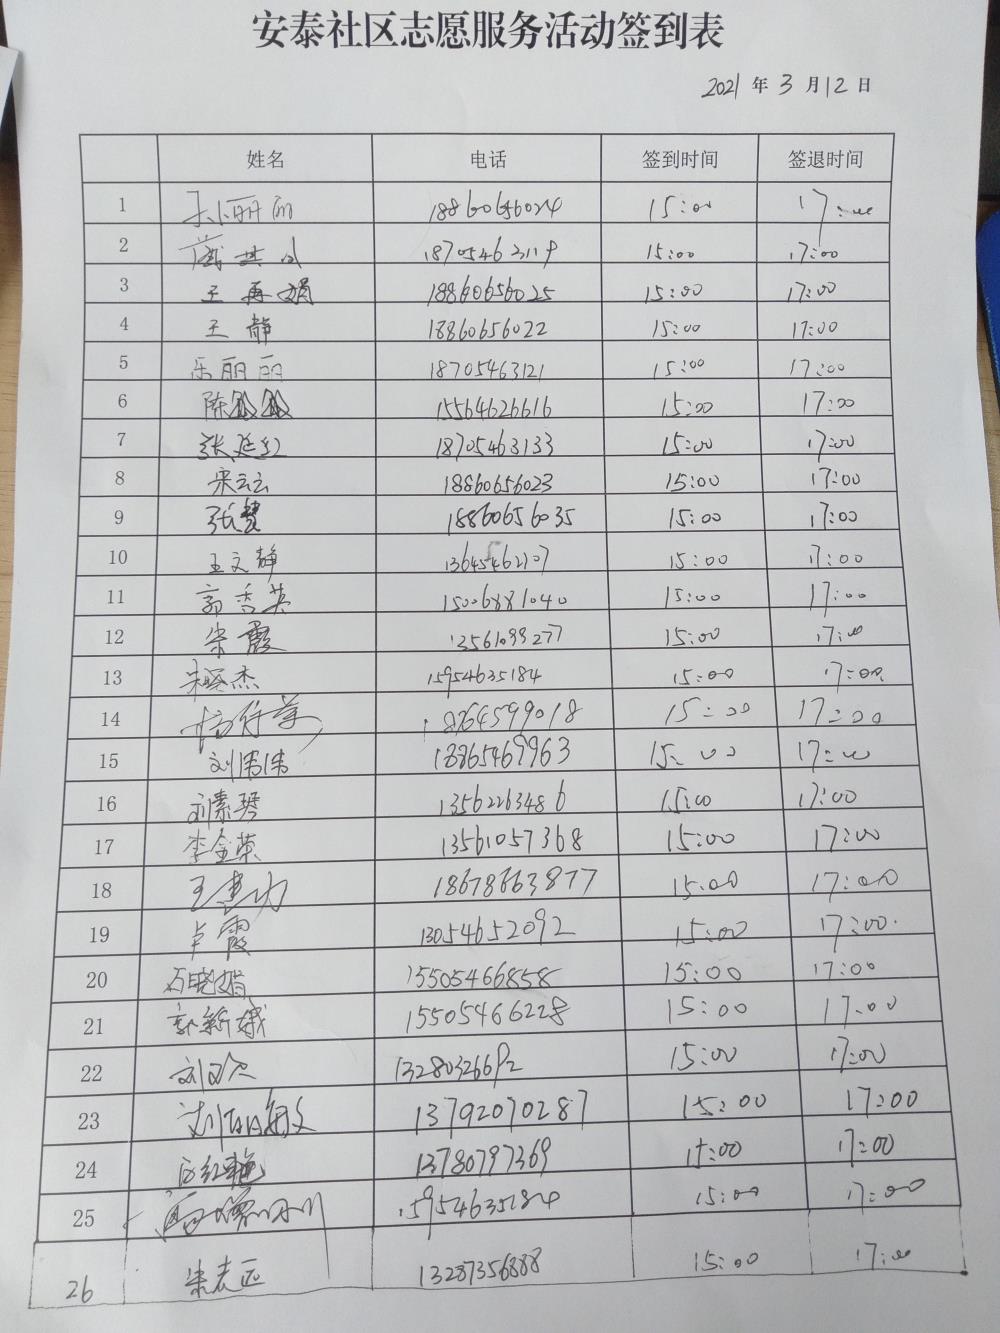 安泰社区志愿服务活动签到表
2021年3月12日
姓名 电话 签到时间 签退时间
1 孙丽丽 18860656024 15:00 17:00
2 18705463119 15:00 17:00
3 王再娟 18860656025 15:00 17:00
4 王静 18860656022 15:00 17:00
5 乐丽丽 18705463121 15:00 17:00
6 陈 15564626616 15:00 17:00
7 张廷红 18705463133 15:00 17:00
8 宋云云 18860656023 15:00 17:00
9 张慧 18860656035 15:00 17:00
10 王文静 13645462107 15:00 17:00
11 郭香英 15006881040 15:00 17:00
12 宋霞 13561099277 15:00 17:00
13 宋晓杰 15954635184 15:00 17:00
14 18264599018 15:00 17:00
15 刘伟伟 18865469963 15:00 17:00
16 刘素琴 13562263486 15:00 17:00
17 李金荣 13561057368 15:00 17:00
18 王建功 18678663877 15:00 17:00
19 卢霞 13054652092 15:00 17:00
20 石晓娟 15505466858 15:00 17:00
21 郭新娥 15505466228 15:00 17:00
22 刘 13280326692 15:00 17:00
23 刘丽敏 13792070287 15:00 17:00
24 红艳 13780797369 15:00 17:00
25 15954635184 15:00 17:00
26 朱志臣 13287356888 15:00 17:00